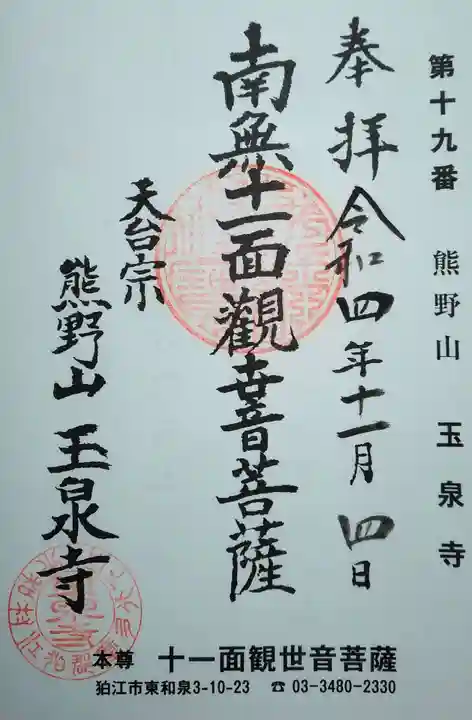 第十九番 熊野山 玉泉寺
奉拝 令和四年十一月四日
南無十一面觀世音菩薩
天台宗
熊野山 玉泉寺
本尊 十一面観世音菩薩
狛江市東和泉3-10-23 ☎ 03-3480-2330